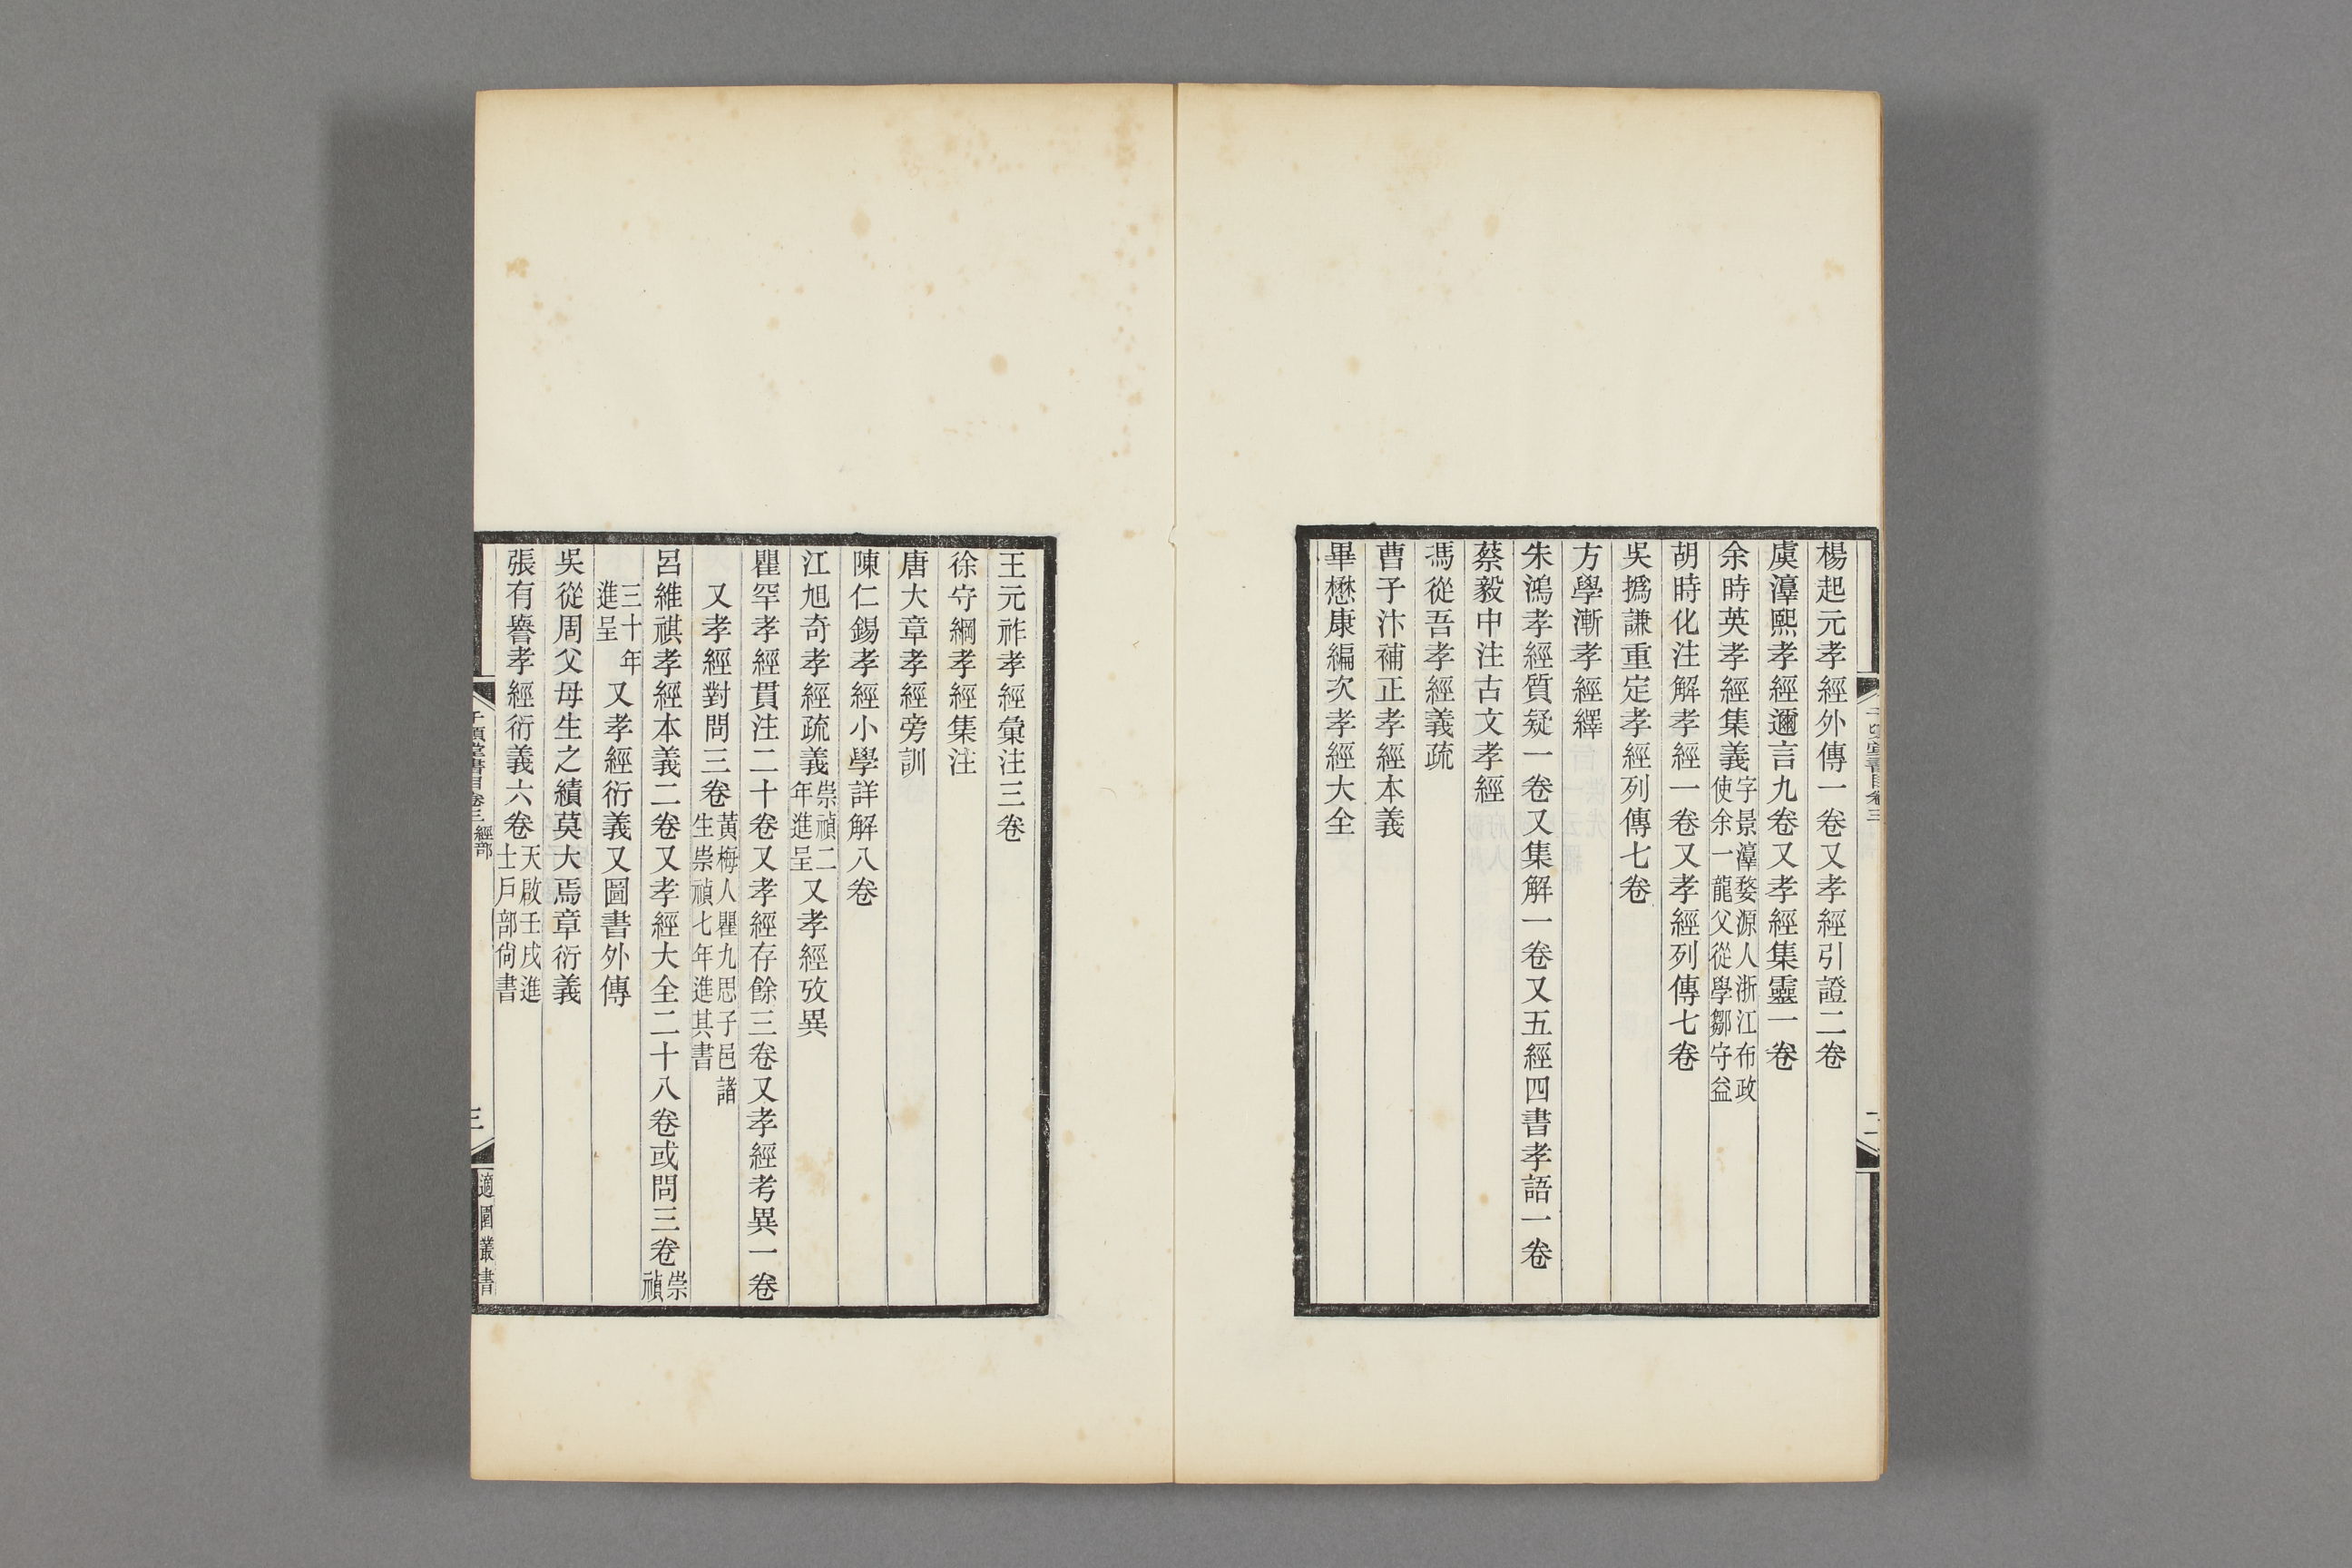 楊起元孝經外傳一卷又孝經引證二卷
虞淳熙孝經邇言九卷又孝經集靈一卷
余時英孝經集義字景淳婺源人浙江布政使余一龍父從學鄒守益
胡時化注解孝經一卷又孝經列傳七卷
吳撝謙重定孝經列傳七卷
方學漸孝經繹
朱鴻孝經質疑一卷又集解一卷又五經四書孝語一卷
蔡毅中注古文孝經
馮從吾孝經義疏
曹于汴補正孝經本義
畢懋康編次孝經大全
王元祚孝經彙注三卷
徐守綱孝經集注
唐大章孝經旁訓
陳仁錫孝經小學詳解八卷
江旭奇孝經疏義崇禎二年進呈又孝經攷異
瞿罕孝經貫注二十卷又孝經存餘三卷又孝經考異一卷
又孝經對問三卷黃梅人瞿九思子邑諸生崇禎七年進其書
呂維祺孝經本義二卷又孝經大全二十八卷或問三卷崇禎
三十年進呈又孝經衍義又圖書外傳
吳從周父母生之績莫大焉章衍義
張有譽孝經衍義六卷天啟壬戌進士戶部尙書
千頃堂書目卷三 經部
三
適園叢書